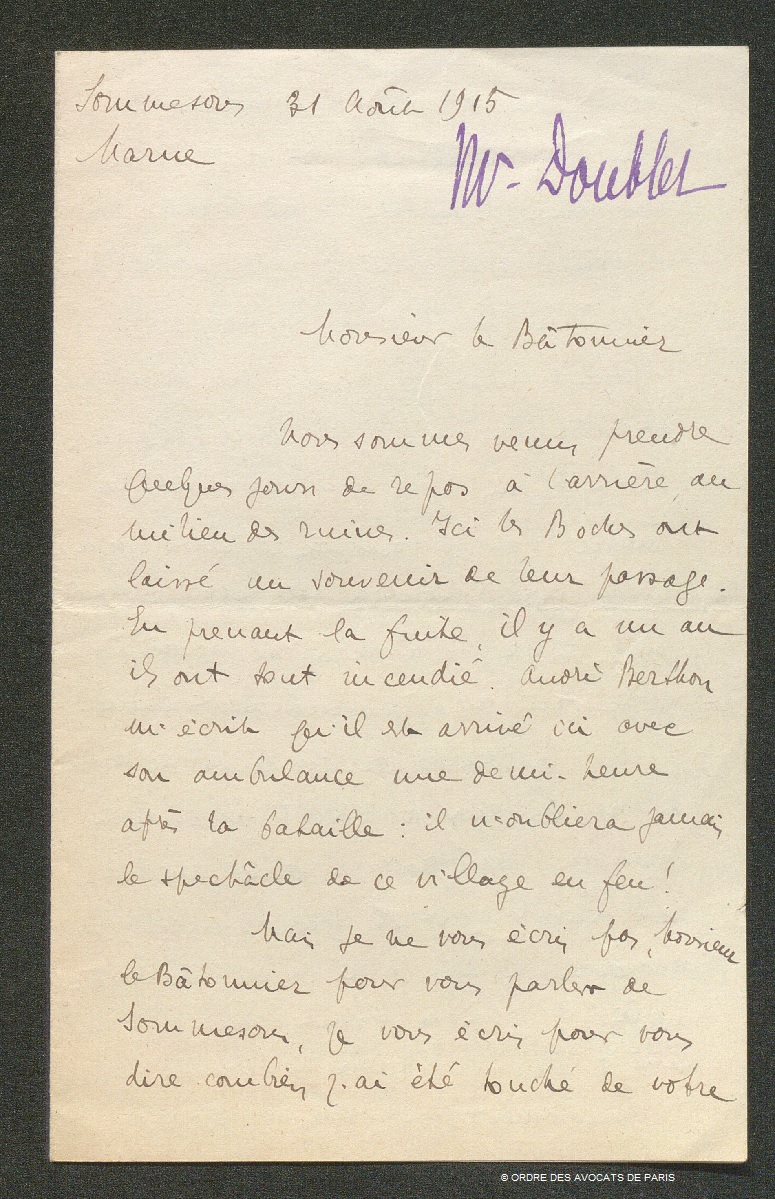 Sommesous 31 Août 1915
Marne
Mr Doublet
Monsieur le Bâtonnier
Nous sommes venus prendre
quelques jours de repos à l'arrière, au
milieu des ruines. Ici les Boches ont
laissé un souvenir de leur passage.
En prenant la fuite, il y a un an
ils ont tout incendié. André Berthon
m'écrit qu'il est arrivé ici avec
son ambulance une demi-heure
après la bataille : il n'oubliera jamais
le spectâcle de ce village en feu !
Mais je ne vous écris pas, Monsieur
le Bâtonnier pour vous parler de
Sommesous, je vous écris pour vous
dire combien j'ai été touché de votre
© ORDRE DES AVOCATS DE PARIS